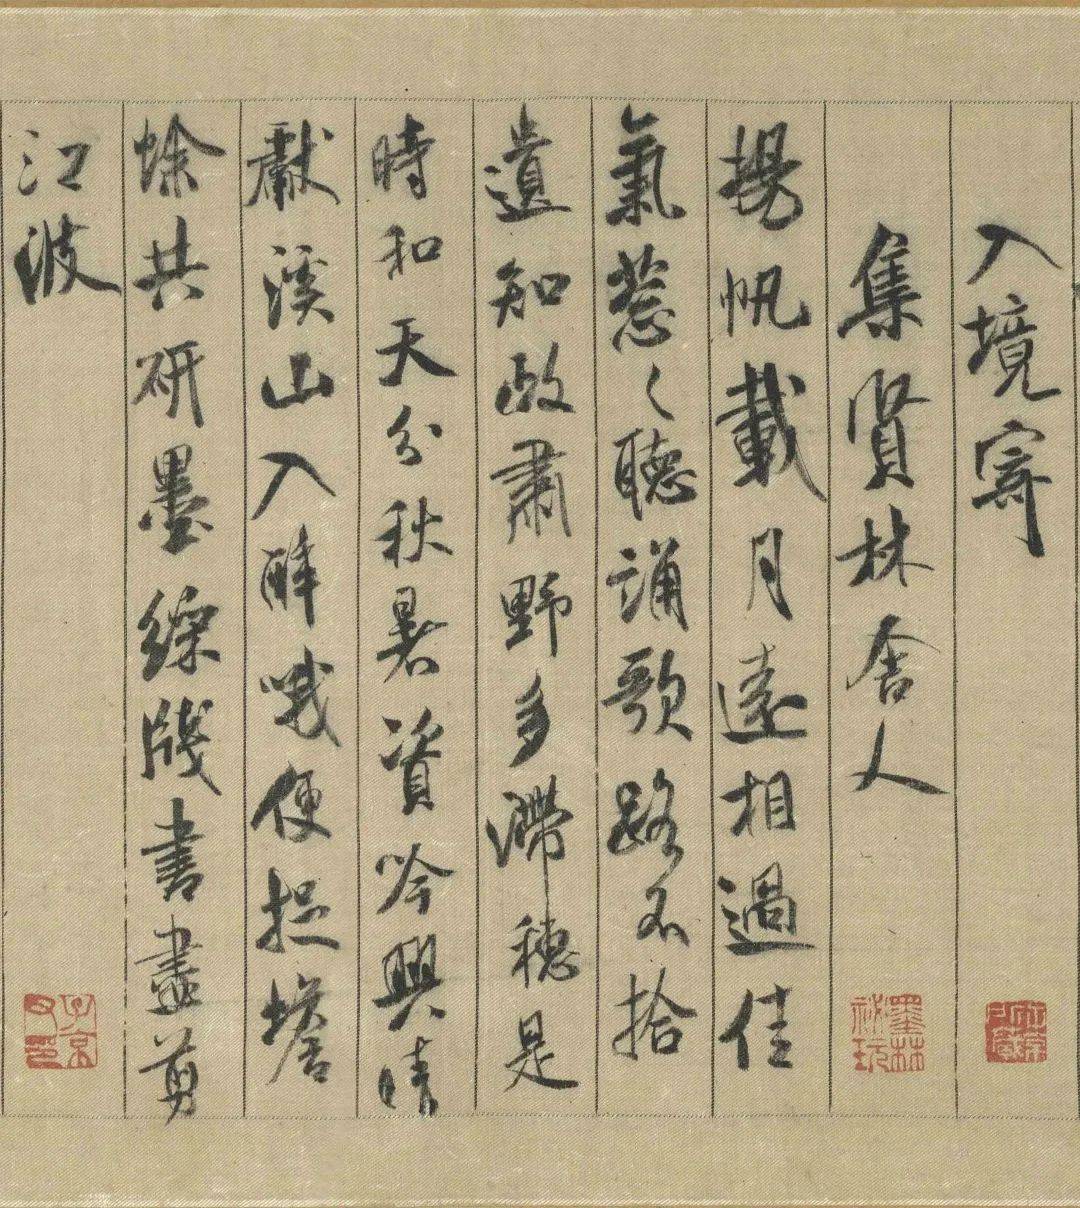 入境寄
集賢林舍人
揚帆載月遠相過佳
氣葱〻聽誦歌路不拾
遺知政肅野多滯穗是
時和天分秋暑資吟興晴
獻溪山入醉哦便捉蟾
蜍共研墨綵牋書盡剪
江波
墨林祕玩
子京父印